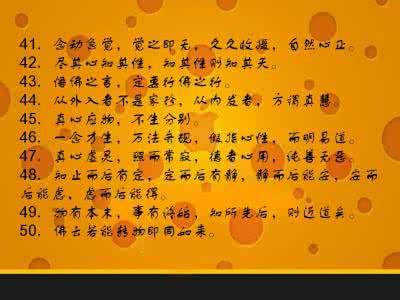 41. 念动急觉，觉之即无，久久收摄，自然心正。
42. 尽其心知其性，知其性则知其天。
43. 悟佛之言，定要行佛之行。
44. 从外入者不是家珍，从内发者，方谓真慧。
45. 真心应物，不生分别。
46. 一念才生，万法现，指心性，而明易道。
47. 真心虚灵，照而常寂，德者心用，纯善无恶。
48. 知止而后有定，定而后有静，静而后能安，安而
后能虑，虑而后能得。
49. 物有本末，事有终始，知所先后，则近道矣。
50. 佛云若能转物即同如来。